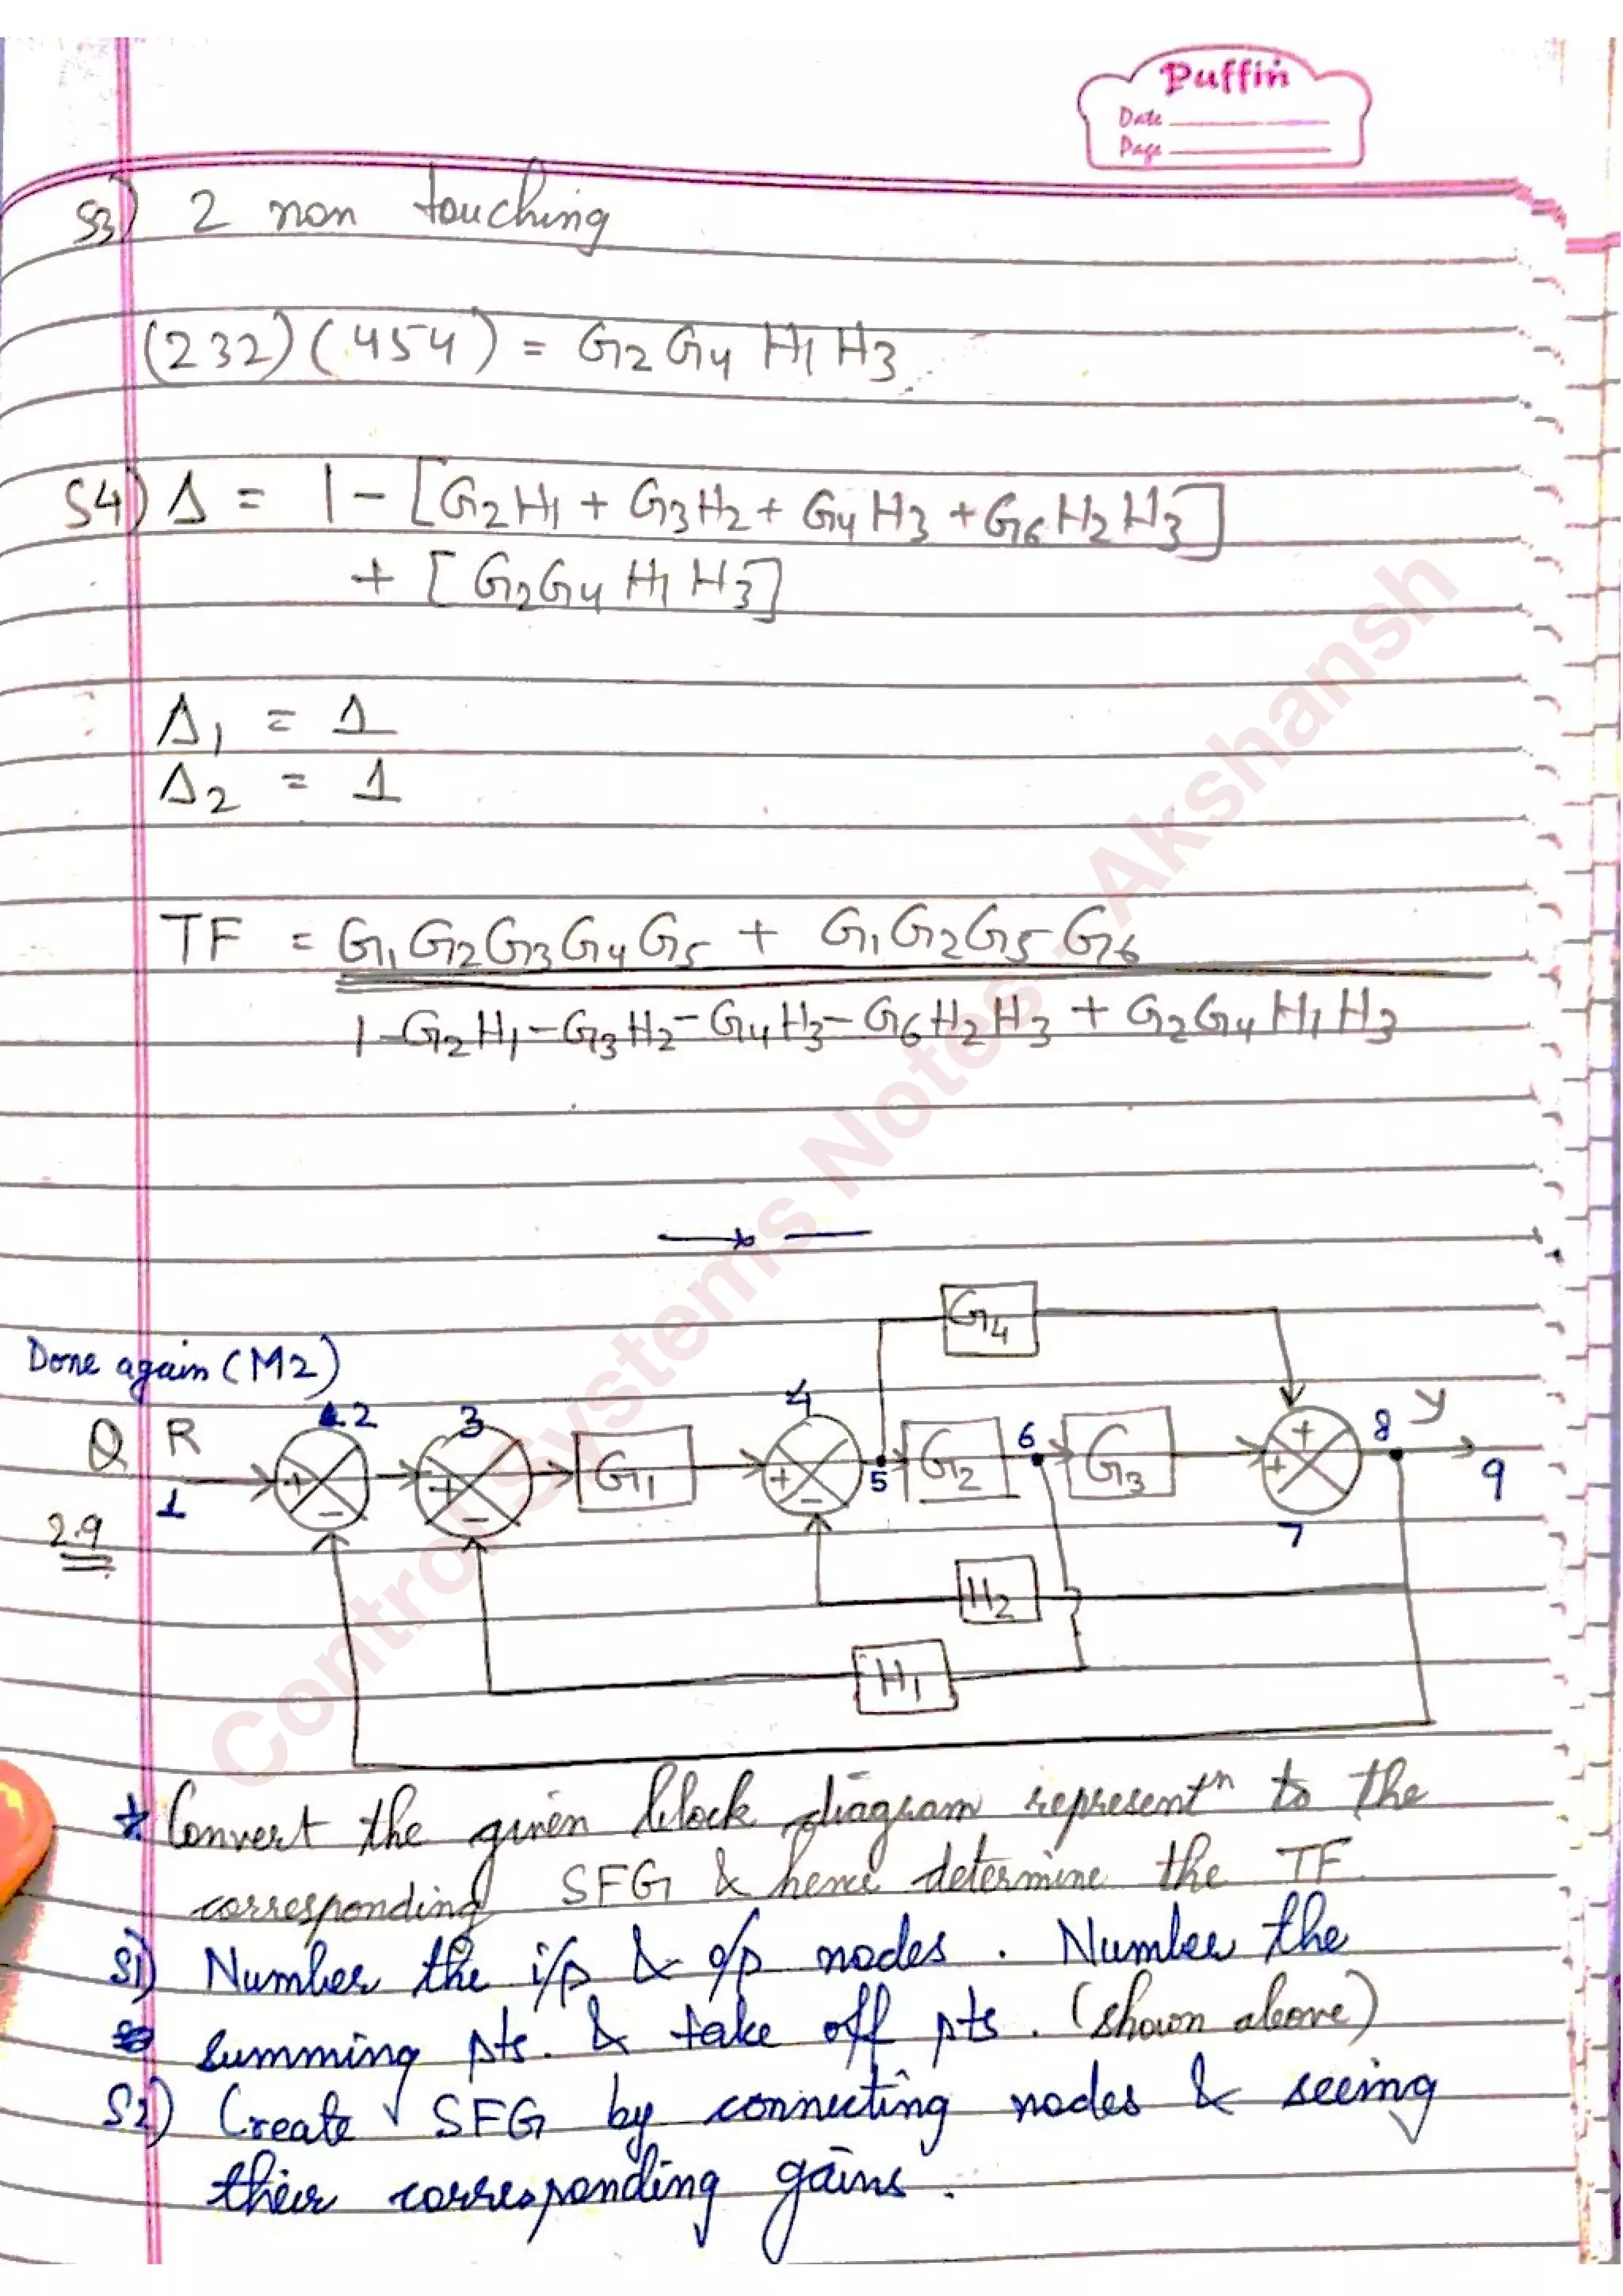 Puffin
Date
Page
S3) 2 non touching
(232)(454) = G2G4 H1H3
S4) Δ = 1 - [G2H1 + G3H2 + G4H3 + G6H2H3]
+ [G2G4 H1H3]
Δ1 = 1
Δ2 = 1
TF = G1G2G3G4G5 + G1G2G5G6
1-G2H1-G3H2-G4H3-G6H2H3 + G2G4H1H3
Control Systems Notes - Akshansh
G4
Done again (M2)
Q R 2 3 G1 4 5 G2 6 G3 8 y
1 + - + - + - + + 7 9
2.9
H2
H1
* Convert the given block diagram representn to the
corresponding SFG & hence determine the TF
S1) Number the i/p & o/p nodes . Number the
summing pts. & take off pts . (shown above)
S2) Create SFG by connecting nodes & seeing
their corresponding gains .